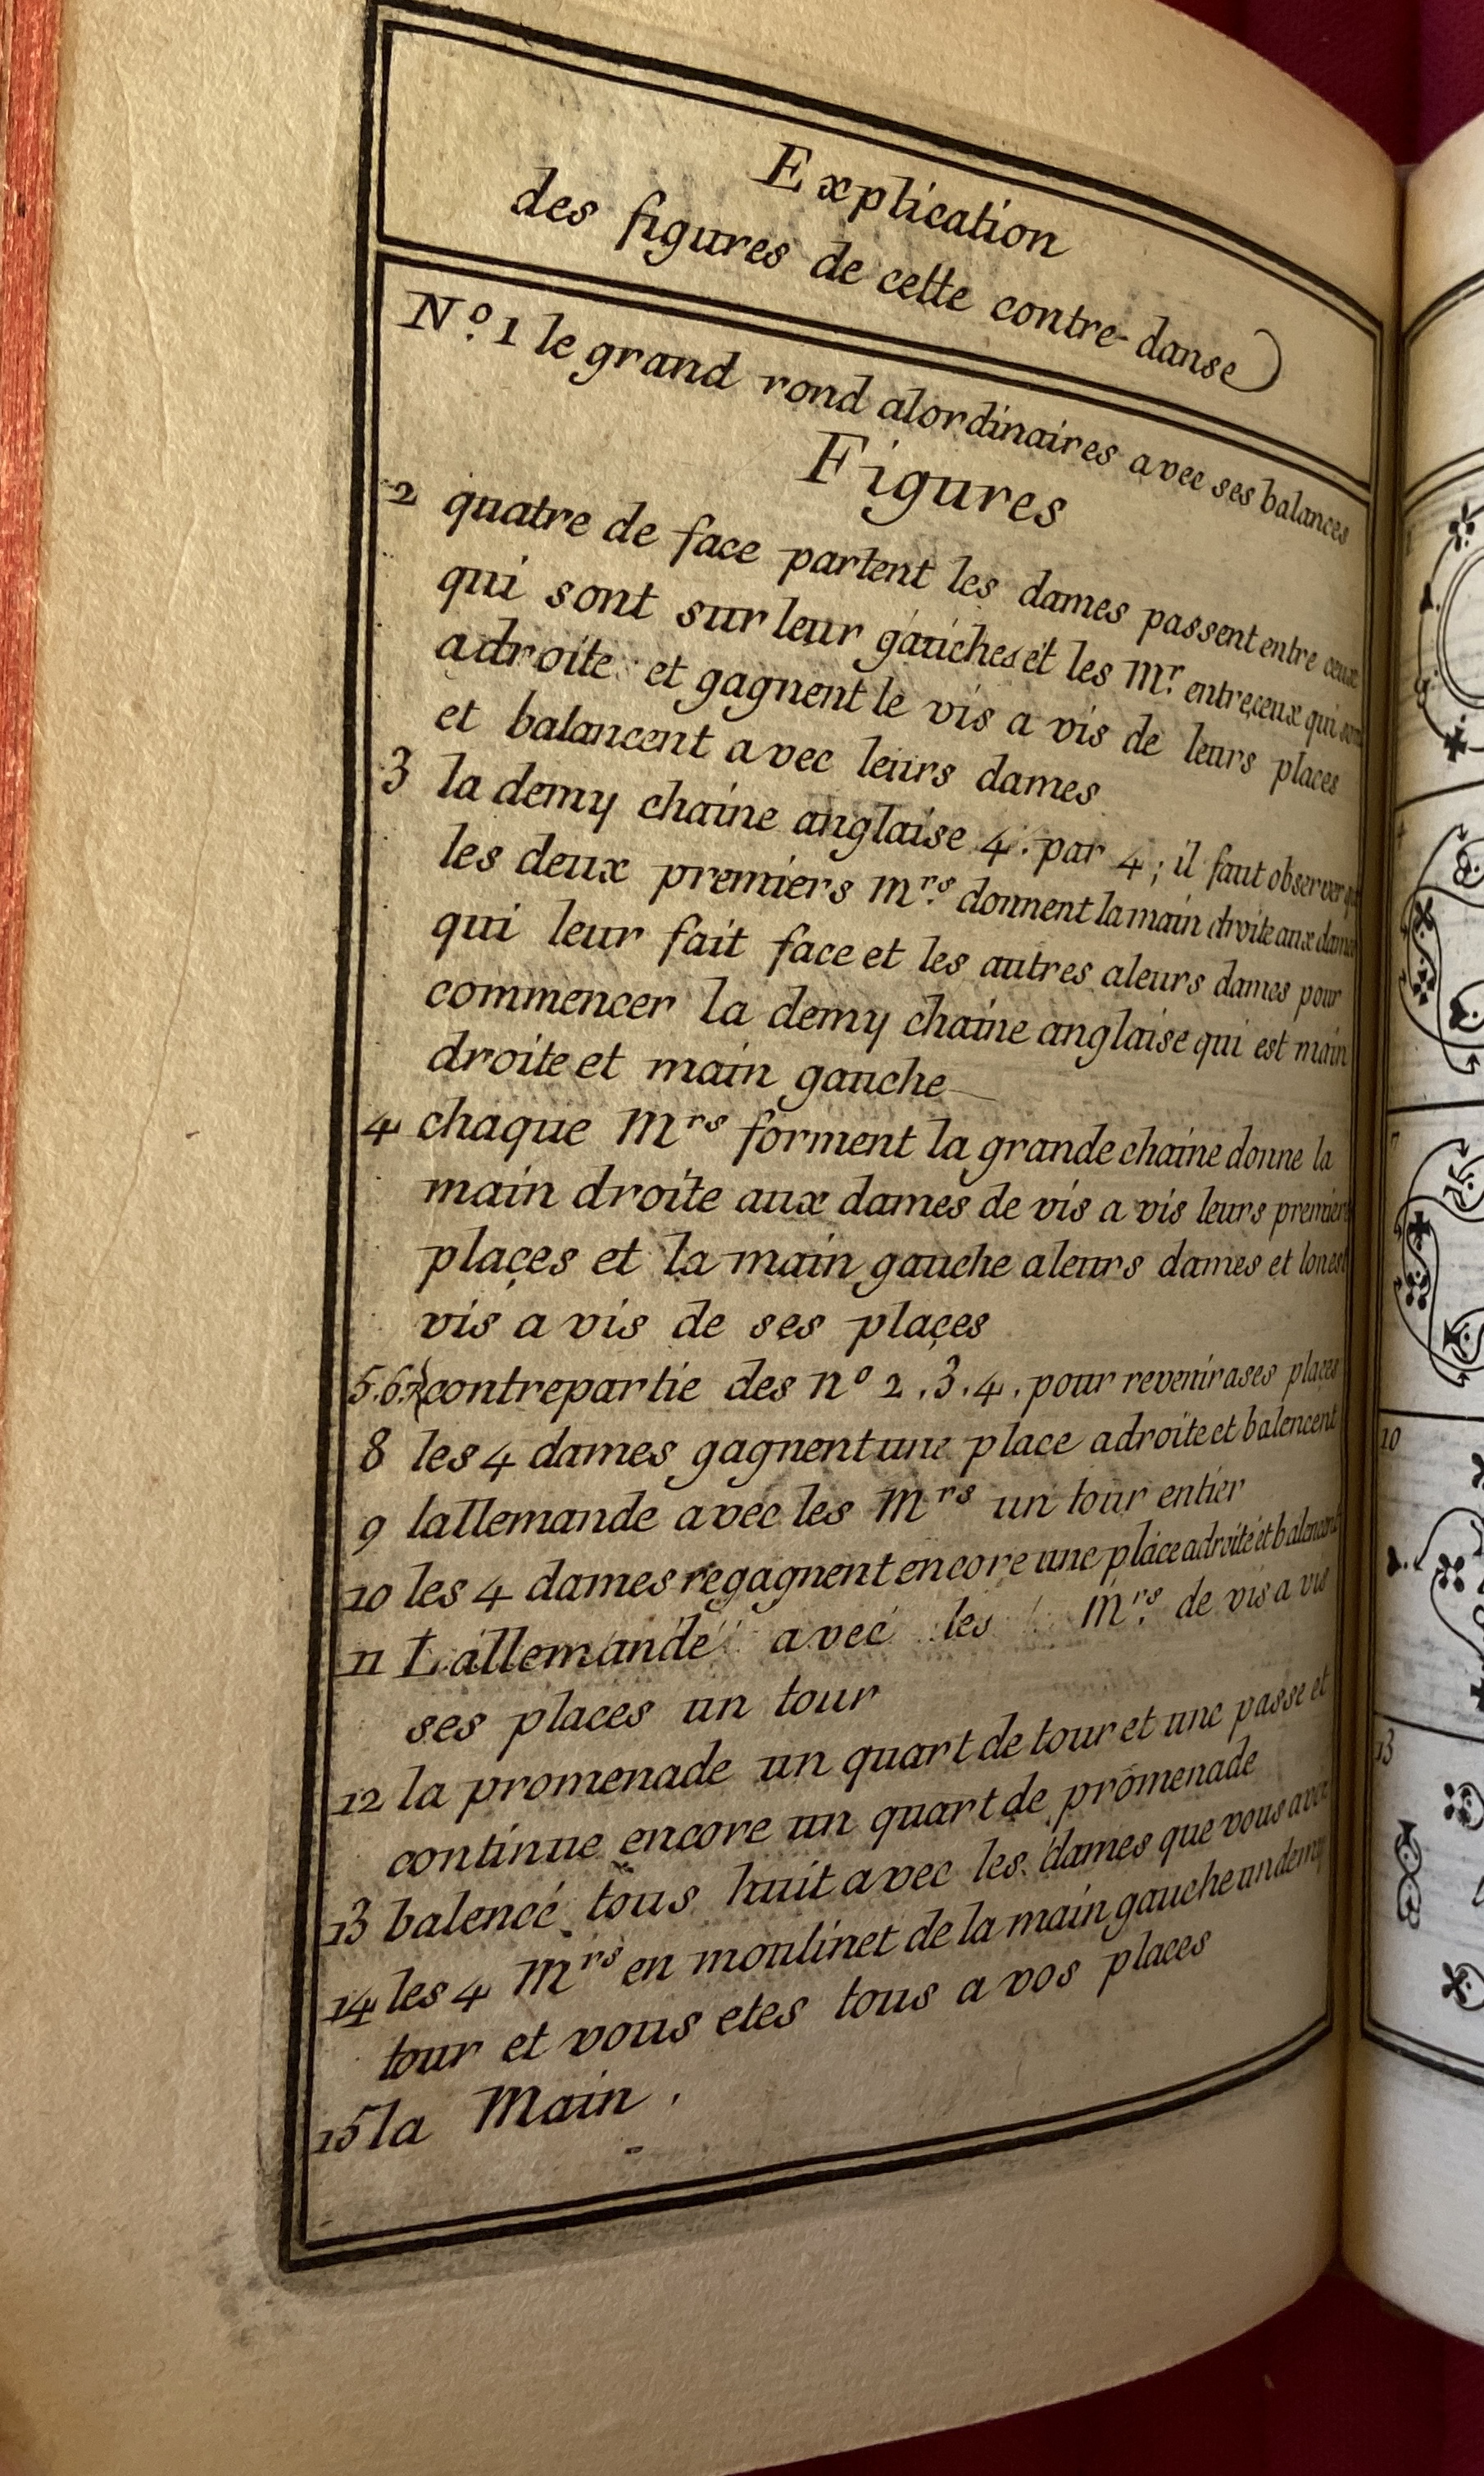 Explication
des figures de cette contre-danse
N.º 1 le grand rond alordinaires avec ses balances
Figures
2 quatre de face partent les dames passent entre ceux
qui sont sur leur gauches et les Mr. entre ceux qui son
adroite et gagnent le vis a vis de leurs places
et balancent avec leurs dames
3 la demy chaine anglaise 4. par 4; il faut observer
les deux premiers Mrs. donnent la main droite aux dames
qui leur fait face et les autres aleurs dames pour
commencer la demy chaine anglaise qui est main
droite et main gauche
4 chaque Mrs forment la grande chaine donne la
main droite aux dames de vis a vis leurs premiers
plaçes et la main gauche aleurs dames et lonest
vis a vis de ses plaçes
5.6.7 contrepartie des nº 2.3.4. pour revenir ases plaçes
8 les 4 dames gagnent une place adroite et balencent
9 lallemande avec les Mrs un tour entier
10 les 4 dames regagnent encore une place adroite et balencent
11 Lallemande avec les Mrs. de vis a vis
ses places un tour
12 la promenade un quart de tour et une passe et
continue encore un quart de promenade
13 balencé tous huit avec les dames que vous avec
14 les 4 Mrs en moulinet de la main gauche un demy
tour et vous etes tous a vos places
15 la Main.
10
13